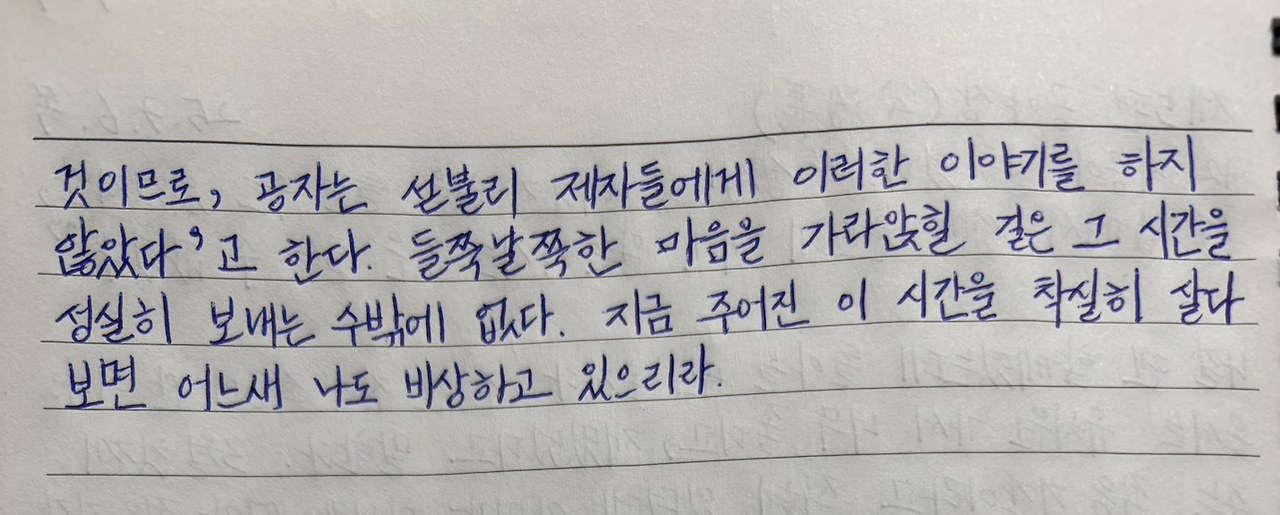 것이므로, 공자는 섣불리 제자들에게 이러한 이야기를 하지
않았다'고 한다. 들쭉날쭉한 마음을 가라앉힐 길은 그 시간을
성실히 보내는 수밖에 없다. 지금 주어진 이 시간을 착실히 살다
보면 어느새 나도 비상하고 있으리라.